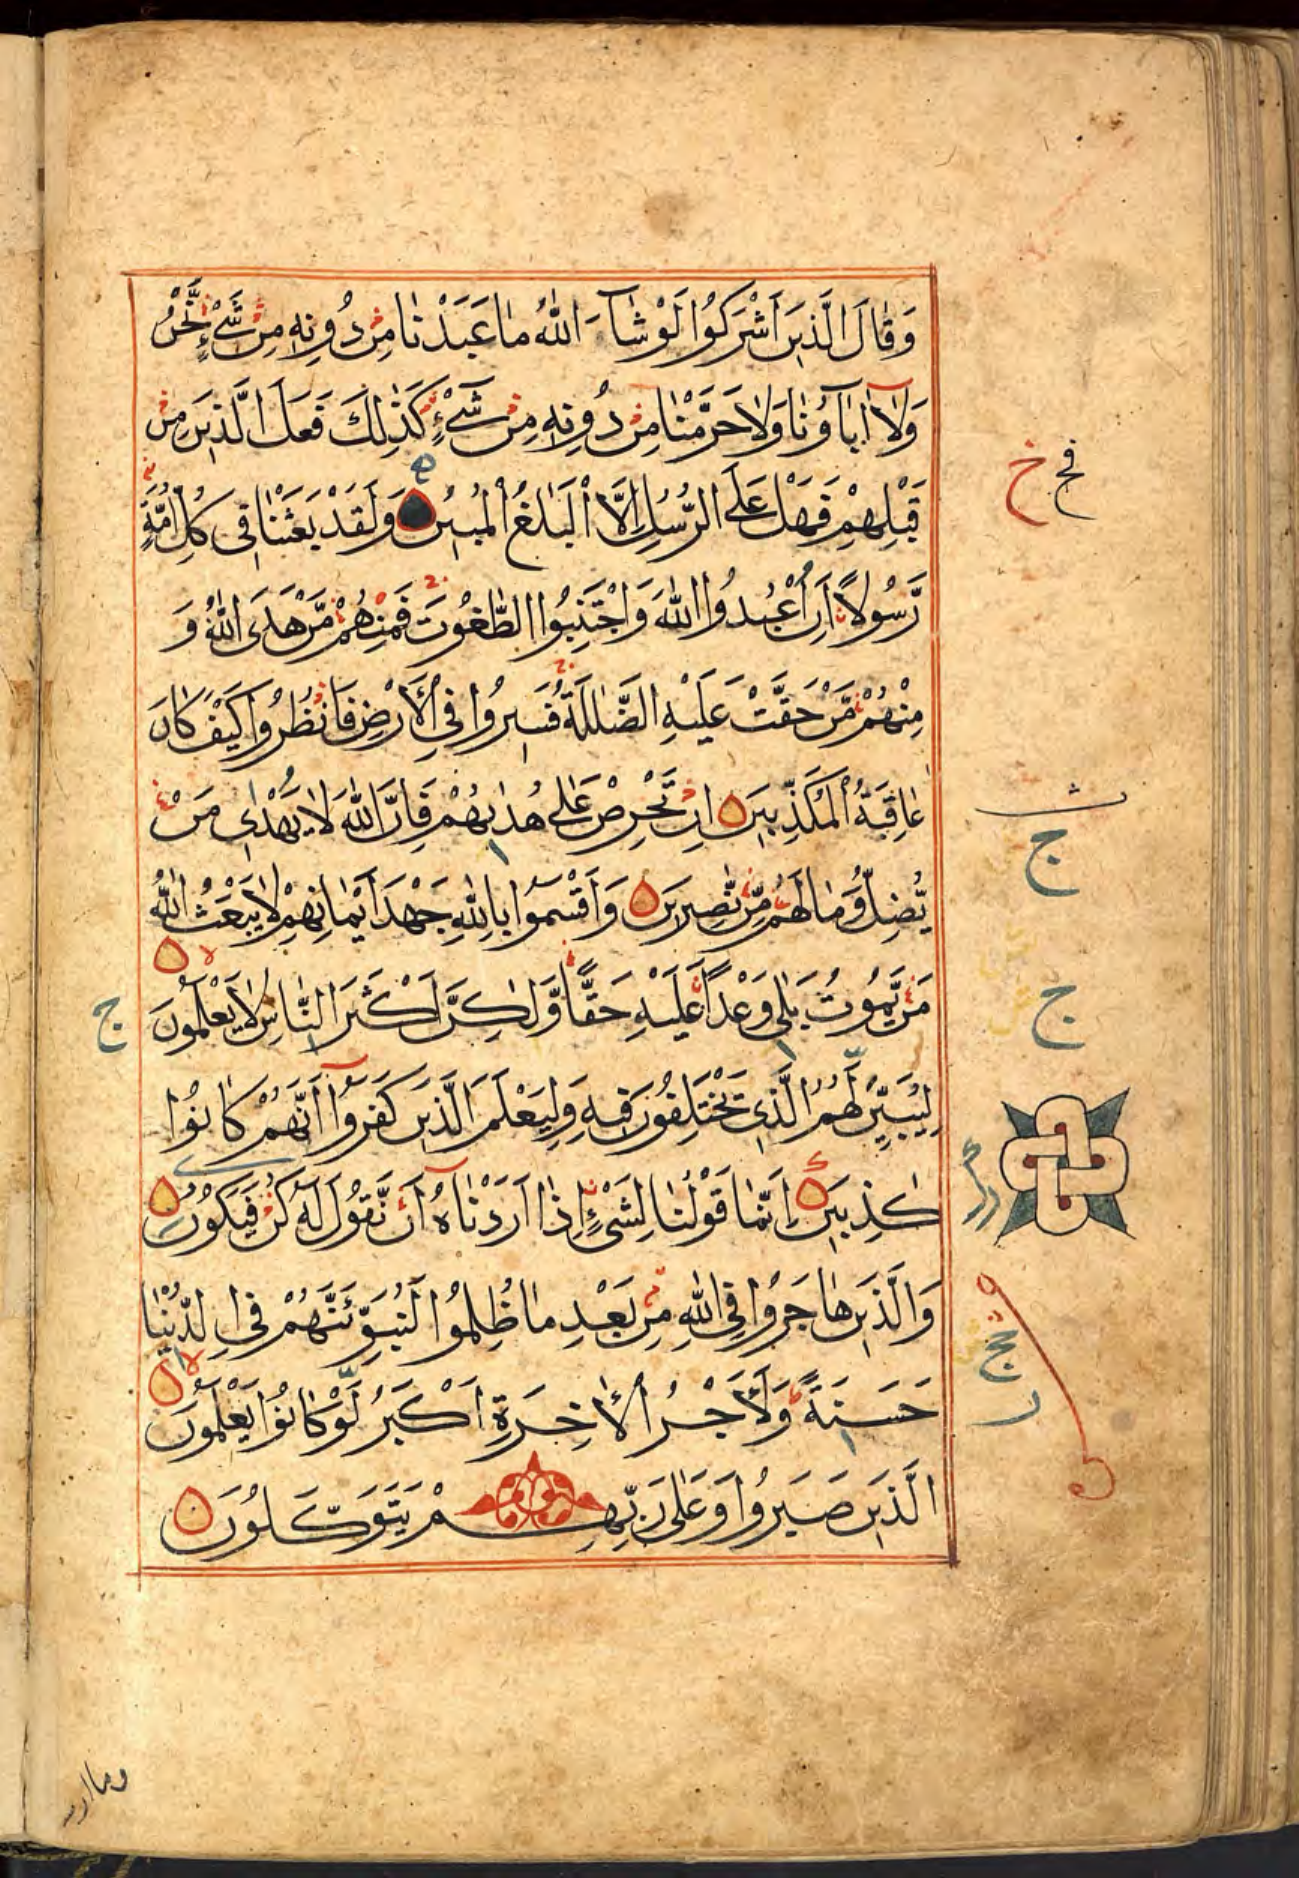 وَقَالَ الَّذِينَ أَشْرَكُوا لَوْ شَآءَ اللّٰهُ مَا عَبَدْنَا مِنْ دُونِهِ مِنْ شَيْءٍ نَّحْنُ
وَلَآ اٰبَآؤُنَا وَلَا حَرَّمْنَا مِنْ دُونِهِ مِنْ شَيْءٍ كَذٰلِكَ فَعَلَ الَّذِينَ مِنْ
قَبْلِهِمْ فَهَلْ عَلَى الرُّسُلِ اِلَّا الْبَلٰغُ الْمُبِينُ وَلَقَدْ بَعَثْنَا فِي كُلِّ اُمَّةٍ
رَّسُولًا اَنِ اعْبُدُوا اللّٰهَ وَاجْتَنِبُوا الطّٰغُوتَ فَمِنْهُمْ مَّنْ هَدَى اللّٰهُ وَ
مِنْهُمْ مَّنْ حَقَّتْ عَلَيْهِ الضَّلٰلَةُ فَسِيرُوا فِي الْاَرْضِ فَانْظُرُوا كَيْفَ كَانَ
عَاقِبَةُ الْمُكَذِّبِينَ اِنْ تَحْرِصْ عَلٰى هُدٰىهُمْ فَاِنَّ اللّٰهَ لَا يَهْدِي مَنْ
يُّضِلُّ وَمَا لَهُمْ مِّنْ نّٰصِرِينَ وَاَقْسَمُوا بِاللّٰهِ جَهْدَ اَيْمَانِهِمْ لَا يَبْعَثُ اللّٰهُ
مَنْ يَّمُوتُ بَلٰى وَعْدًا عَلَيْهِ حَقًّا وَّلٰكِنَّ اَكْثَرَ النَّاسِ لَا يَعْلَمُونَ
لِيُبَيِّنَ لَهُمُ الَّذِي يَخْتَلِفُونَ فِيهِ وَلِيَعْلَمَ الَّذِينَ كَفَرُوآ اَنَّهُمْ كَانُوا
كٰذِبِينَ اِنَّمَا قَوْلُنَا لِشَيْءٍ اِذَا اَرَدْنَاهُ اَنْ نَّقُولَ لَهُ كُنْ فَيَكُونُ
وَالَّذِينَ هَاجَرُوا فِي اللّٰهِ مِنْ بَعْدِ مَا ظُلِمُوا لَنُبَوِّئَنَّهُمْ فِي الدُّنْيَا
حَسَنَةً وَلَاَجْرُ الْاٰخِرَةِ اَكْبَرُ لَوْ كَانُوا يَعْلَمُونَ
الَّذِينَ صَبَرُوا وَعَلٰى رَبِّهِمْ يَتَوَكَّلُونَ
ج
ج
ج